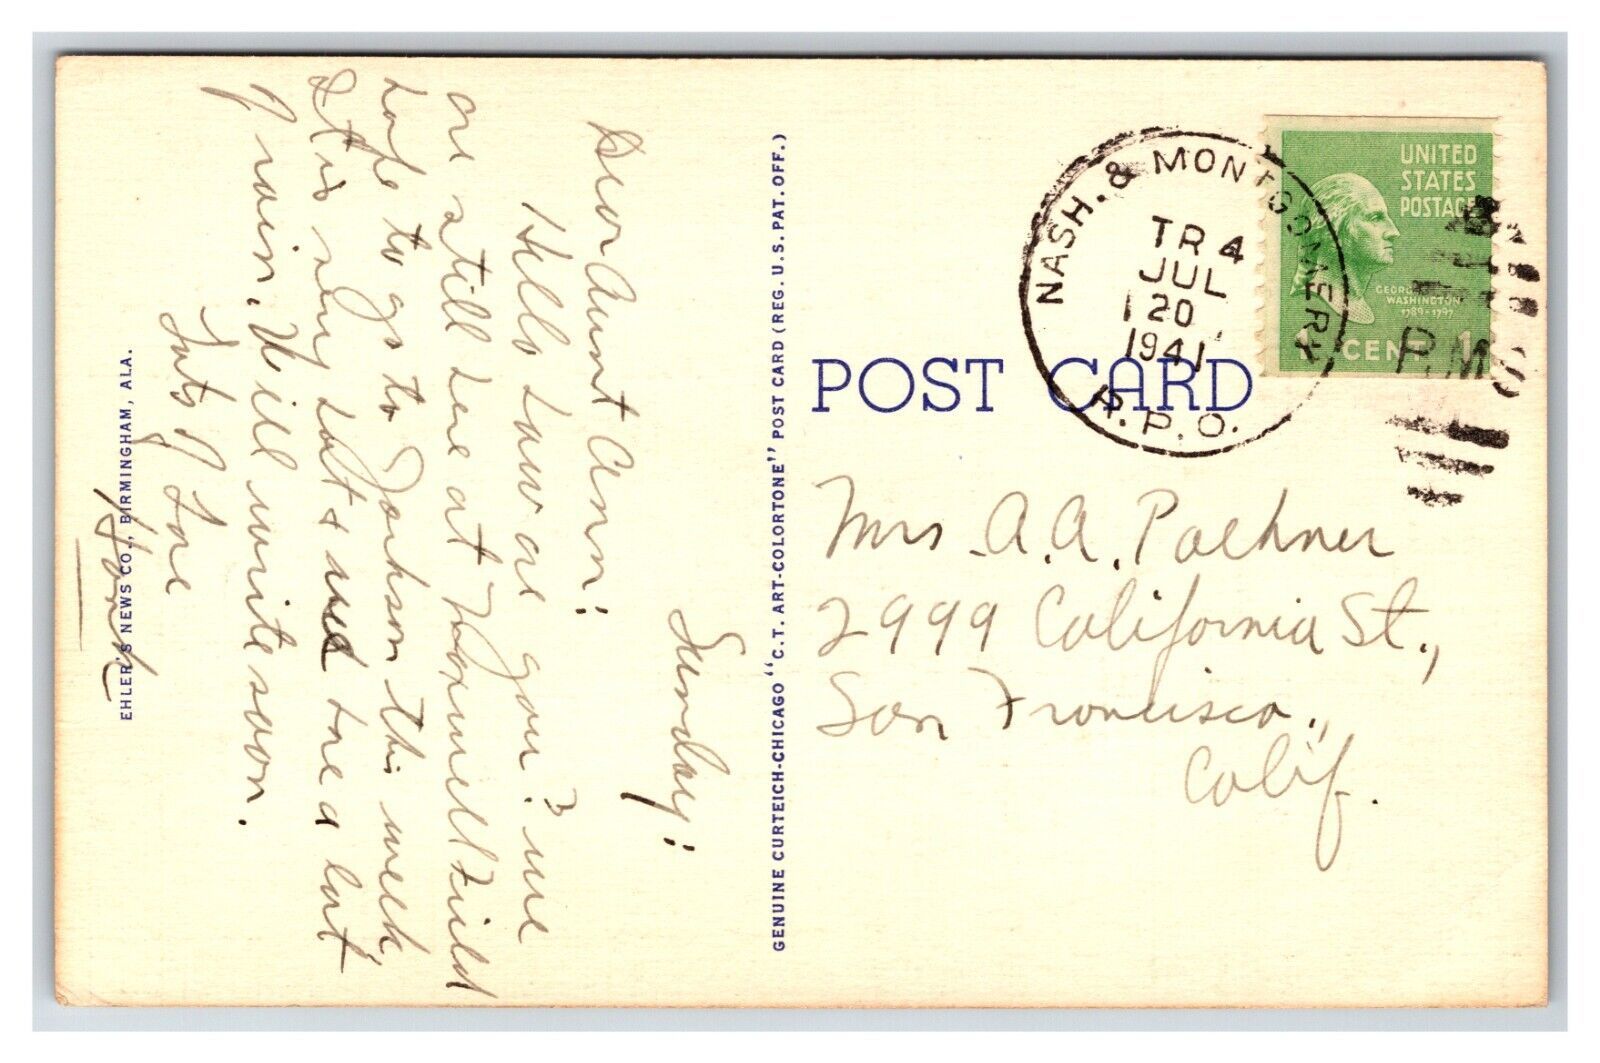 Sunday:
Dear Aunt Ann:
Hello how are you? we
are still here at Maxwell Field
hope to go to Jackson this week,
It is very hot & we have a lot
of rain. Will write soon.
Lots of Love
EHLER'S NEWS CO., BIRMINGHAM, ALA.
GENUINE CURTEICH-CHICAGO "C.T. ART-COLORTONE" POST CARD (REG. U.S. PAT. OFF.)
NASH. & MONTGOMERY
TR 4
JUL
20
1941
R.P.O.
UNITED
STATES
POSTAGE
GEORGE
WASHINGTON
1789-1797
1 CENT 1
P.M.
POST CARD
Mrs. A. A. Paehner
2999 California St.,
San Francisco,
Calif.